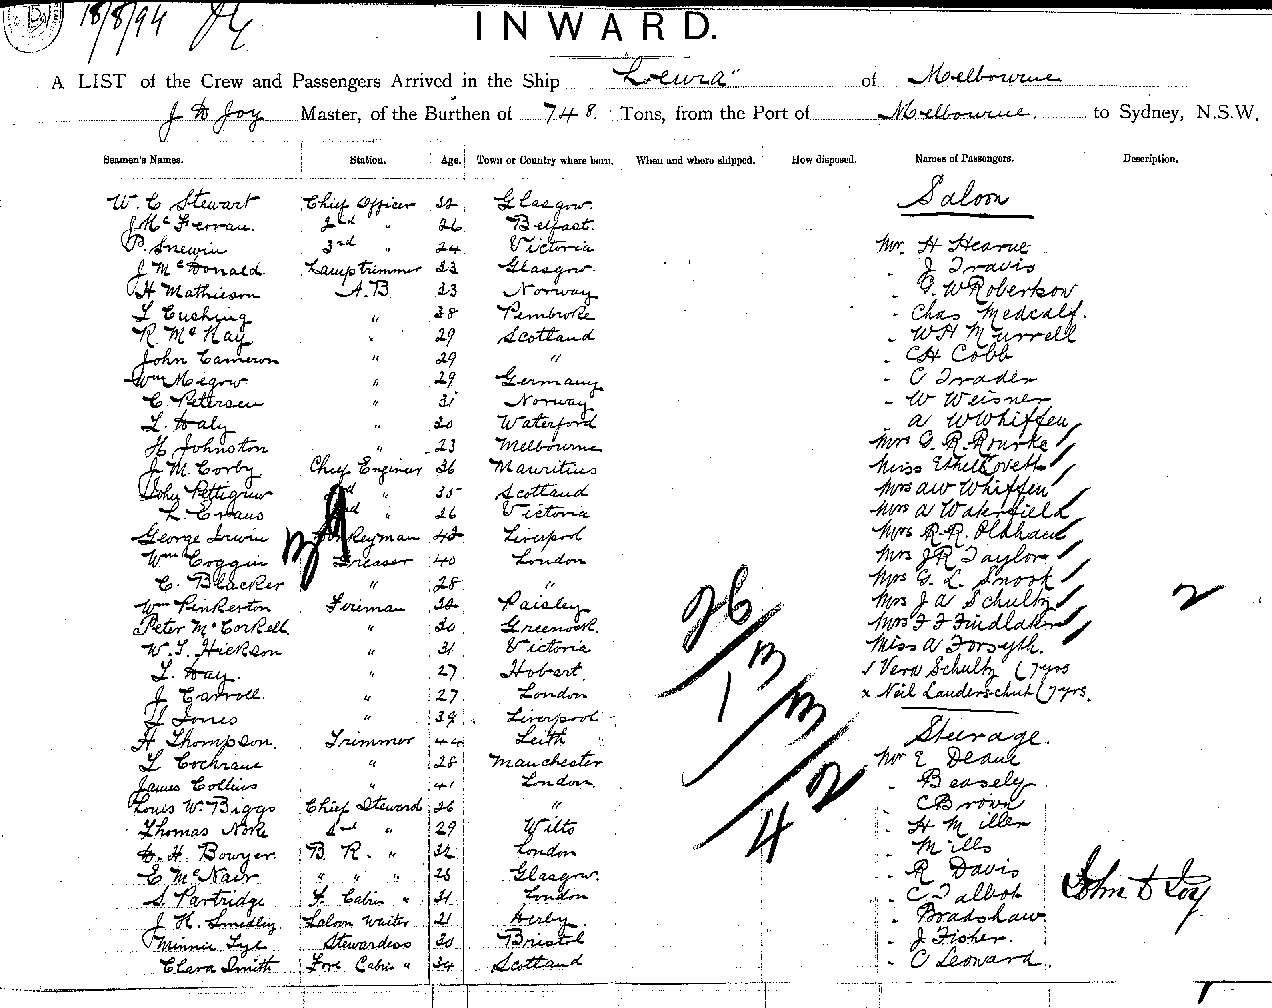 18/8/94
INWARD.
A LIST of the Crew and Passengers Arrived in the Ship "Leura" of Melbourne
J D Joy Master, of the Burthen of 748 Tons, from the Port of Melbourne to Sydney, N.S.W.
Seamen's Names. Station. Age. Town or Country where born. When and where shipped. How disposed. Names of Passengers. Description.
Saloon
W. C Stewart Chief Officer Glasgow
J McFerran. 2nd " 26 Belfast.
P. Snewin 3rd " 24 Victoria Mr. H Hearne
J McDonald Lamptrimmer 23 Glasgow " J Travis
H Mathieson A.B 23 Norway " G. W Robertson
L Cushing " 38 Pembroke " Chas Medcalf.
R. McKay " 29 Scotland " W H Murrell
John Cameron " 29 " " C H Cobb
Wm Migow " 29 Germany " C Trader
C. Petersen " 31 Norway " W Weisner
L. Daly " 30 Waterford " A W Whiffen
H Johnston " 23 Melbourne Mrs G. R. Rourke
J. M. Corby Chief Engineer 36 Mauritius Miss Ethel
John Pettigrew 2nd " 35 Scotland Mrs A W Whiffen
L. Evans 3rd " 26 Victoria Mrs A Wakefield
George Irwin Donkeyman Liverpool Mrs R. R. Oldham
Wm Coggin Greaser 40 London Mrs J R Taylor
C. Blacker " 28 " Mrs G. L. Snook
Wm Pinkerton Fireman Paisley Mrs J A Schultz 2
Peter McCorkell " 30 Greenock Mrs F F Findlater
W. T. Hickson " 31 Victoria Miss A Forsyth.
L. Hay. " 27 Hobart Vera Schultz (7 yrs
J Carroll " 27 London x Neil (7 yrs.
H Jones " 39 Liverpool
H Thompson Trimmer 44 Leith Steerage.
L Cochrane " 28 Manchester Mr E Deane
James Collins " 41 London " Beasely
Louis W. Biggs Chief Steward 26 " " C Brown
Thomas Noke 2nd " 29 Wilts " H Miller
D. H. Bowyer B. R. " 32 London " Mills
E McNair " " " 28 Glasgow. " R Davis
S. Partridge F. Cabin " 31 London " C Talbot
J. H. Smedley Saloon Waiter 21 Derby " Bradshaw
Minnie Lyle Stewardess 30 Bristol " J Fisher.
Clara Smith Fore Cabin " 34 Scotland " C Leonard.
26/13/13/2
1 42
John D Joy